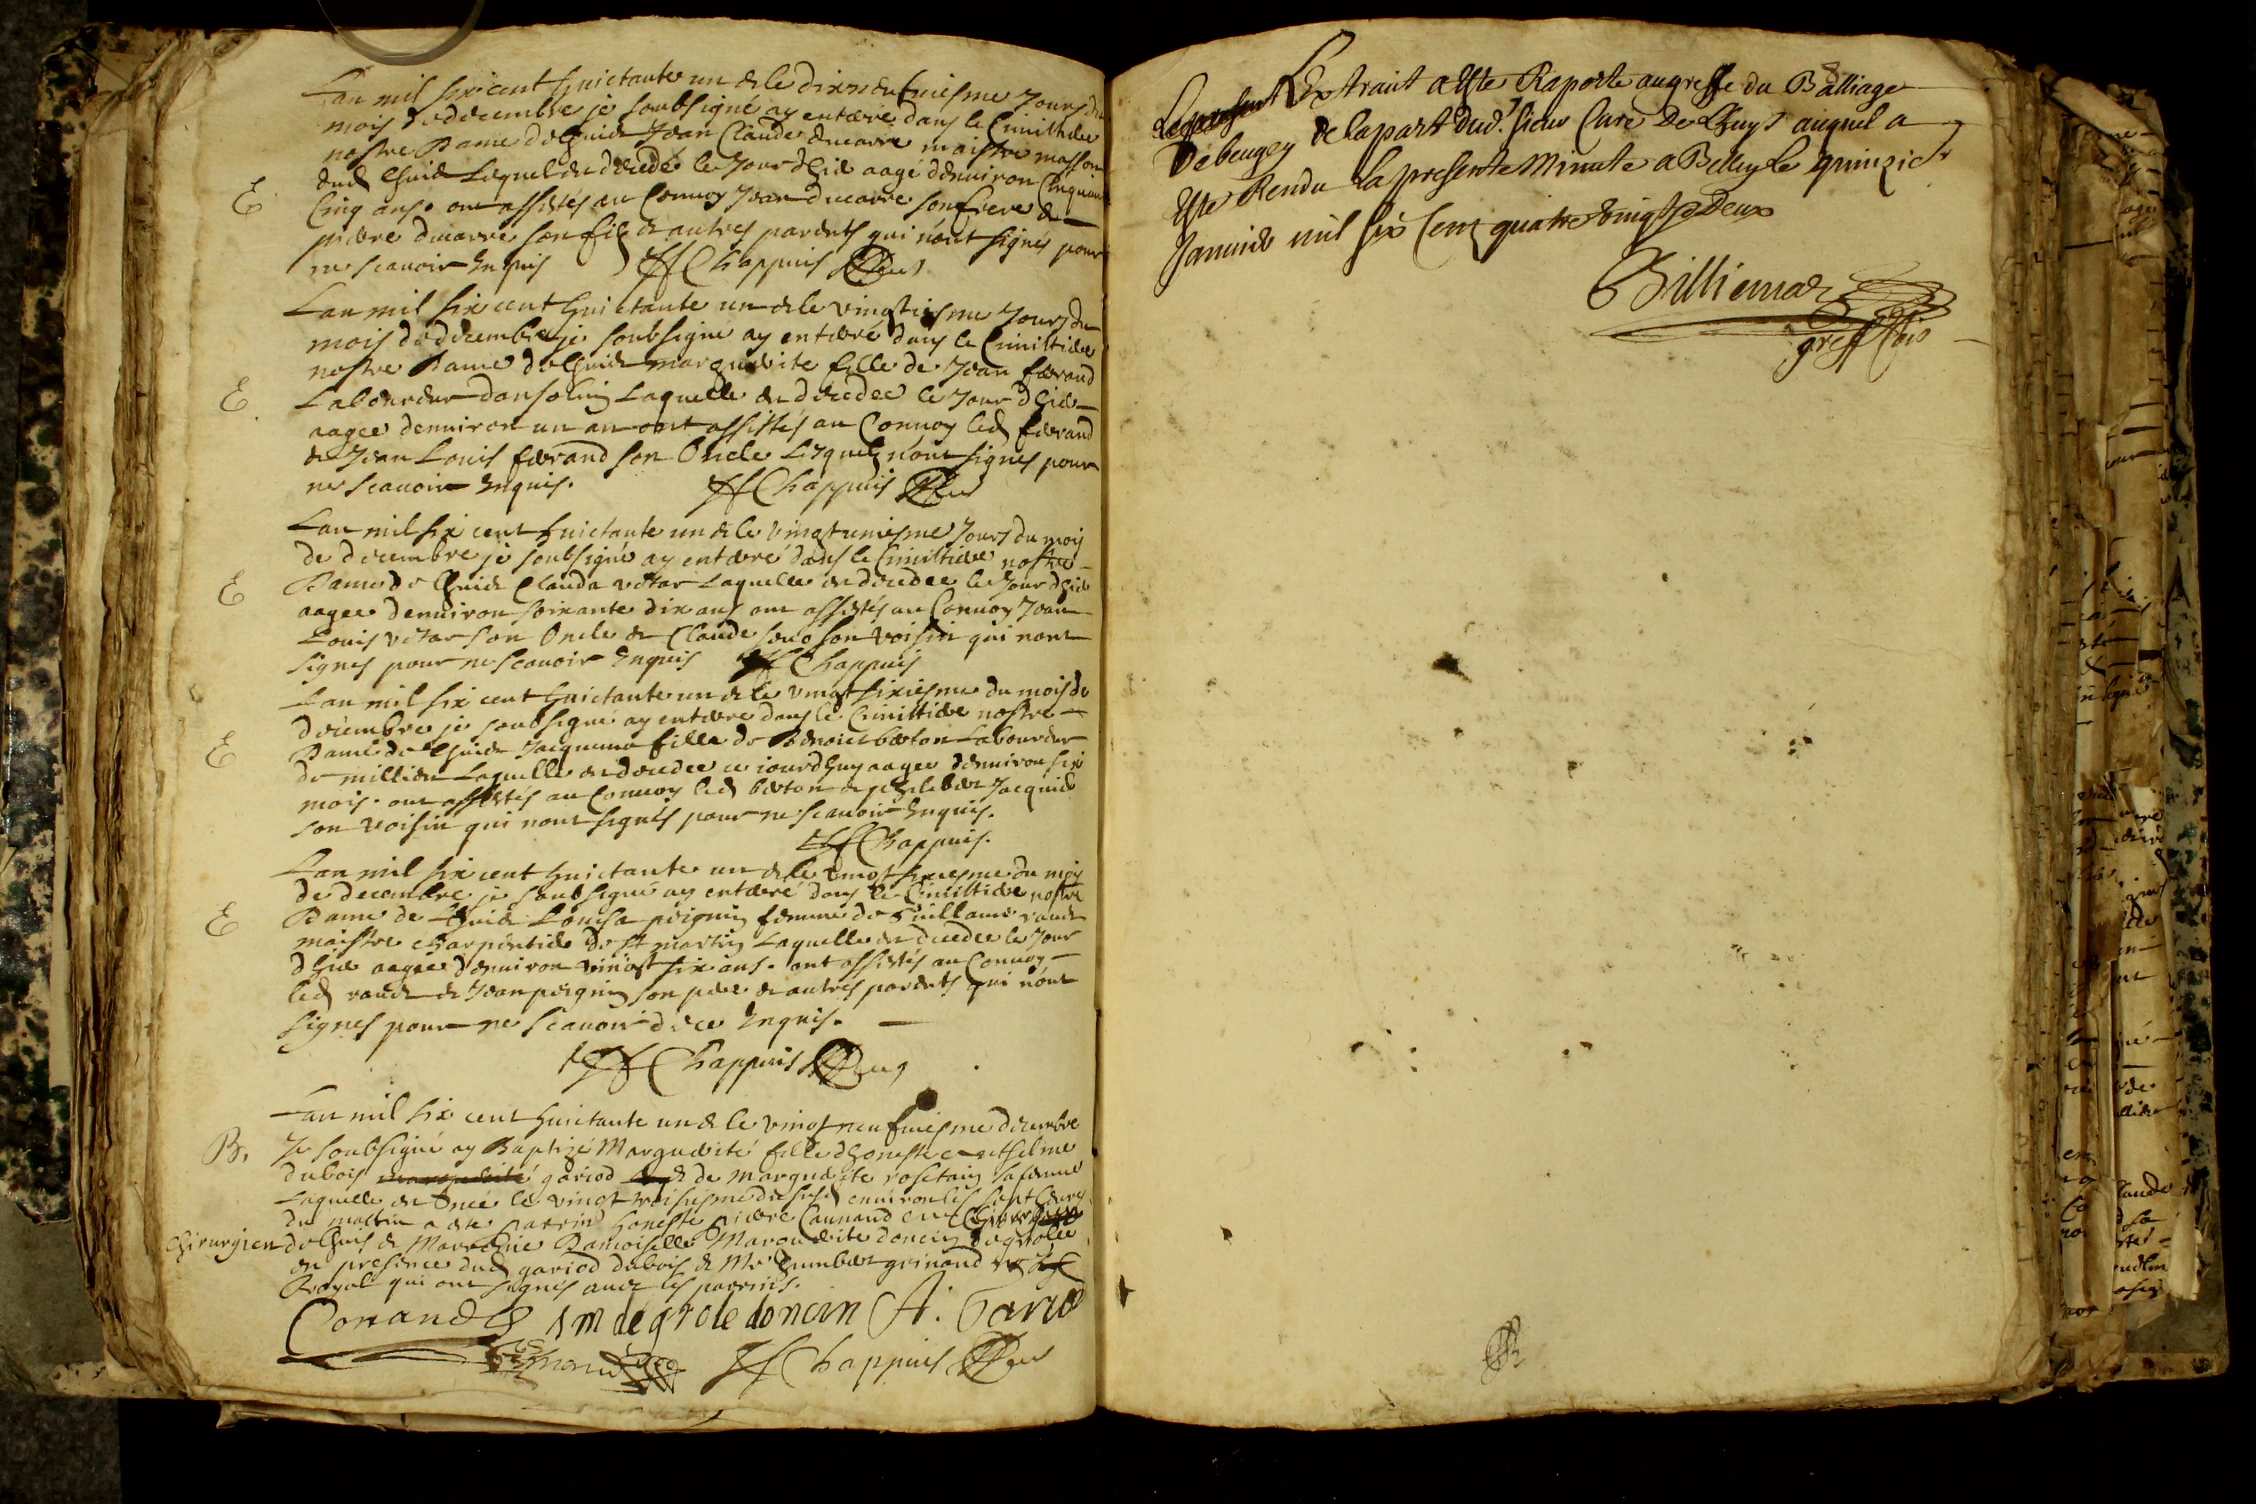 Lan mil six cent huictante un & le dix neufuiesme Jours du
mois de decembre je soubsigné ay enterré dans le Cimithiere
nostre Dame de Lhuis Jean Claude ducarre maistre masson
dud Lhuis Lequel est decedé le Jour dhier aagé denuiron Cinquante
E
Cinq ans. ont assistés au Conuoy Jean ducarre son frere &
pierre ducarre son fils & autres parents qui nont signés pour
ne scauoir Enquis JF Chappuis Curé
Lan mil six cent huictante un & le vingtiesme Jours du
mois de decembre je soubsigné ay enterré dans le Cimistiere
nostre Dame de Lhuis marguerite fille de Jean ferrand
E
Laboureur dansolin Laquelle est decedee le Jour dhier
aagee denuiron un an ont assistés au Conuoy led ferrand
& Jean Louis ferrand son Oncle Lesquels nont signés pour
ne scauoir Enquis. JF Chappuis Curé
Lan mil six cent huictante un & le vingt uniesme Jours du mois
de decembre je soubsigné ay enterré dans le Cimistiere nostre
E
Dame de Lhuis Clauda vetar Laquelle est decedee le Jour dhier
aagee denuiron soixante dix ans ont assistés au Conuoy Jean
Louis vetar son Oncle & Claude son voisin qui nont
signés pour ne scauoir Enquis JF Chappuis
Lan mil six cent huictante un & le vingt sixiesme du mois de
decembre je soubsigné ay enterré dans le Cimistiere nostre
E
Dame de Lhuis Jacquema fille de Benoict berton Laboureur
de millieu Laquelle est decedee ce iourdhuy aagee denuiron six
mois. ont assistés au Conuoy led berton & philibert Jacquier
son voisin qui nont signés pour ne scauoir Enquis.
JF Chappuis.
Lan mil six cent huictante un & le vingt sixiesme du mois
de decembre je soubsigné ay enterré dans le Cimistiere nostre
E
Dame de Lhuis Louisa peignin femme de Guillame
maistre charpentier de St martin Laquelle est decedee le Jour
dhier aagée denuiron vingt six ans. ont assistés au Conuoy
led & Jean peignin son pere & autres parents qui nont
signés pour ne scauoir de ce Enquis.
JF Chappuis Curé
Lan mil six cent huictante un & le vingt neufuiesme decembre
B.
Je soubsigné ay Baptizé Marguerite fille dhoneste anthelme
dubois gariod & de marguerite rosetain sa femme
Laquelle est Onee le vingt troisiesme dususd enuiron les sept heures
du mattin a esté parrin honeste pierre Connand
chirurgien de Lhuis & Marreine Damoiselle Marguerite doncin de grolee
en presence dud gariod dubois & Mr humbert grimand
Royal qui ont signés auec les parrins.
Conand M de grole doncin A. Gariod
Grimand JF Chappuis Curé
Le present Extrait a Este Raporte au greffe du Balliage
De beugey de la part dud. sieur Curé De Lhuys auquel a
Este Rendu la presente Minute a Belley le quinzie
Januier mil six Cent quatre vingt Deux
Billiemaz
greffier